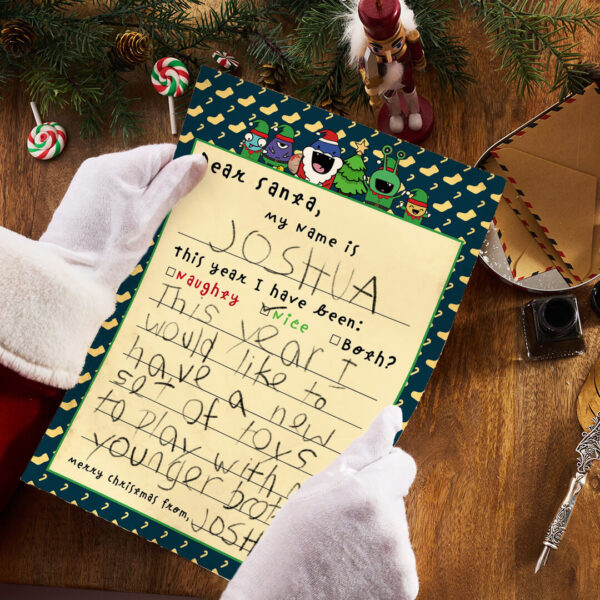 Dear Santa,
My Name is
JOSHUA
This year I have been:
Naughty
Nice
Both?
This year I
would like to
have a new
set of toys
to play with
younger
Merry Christmas from,